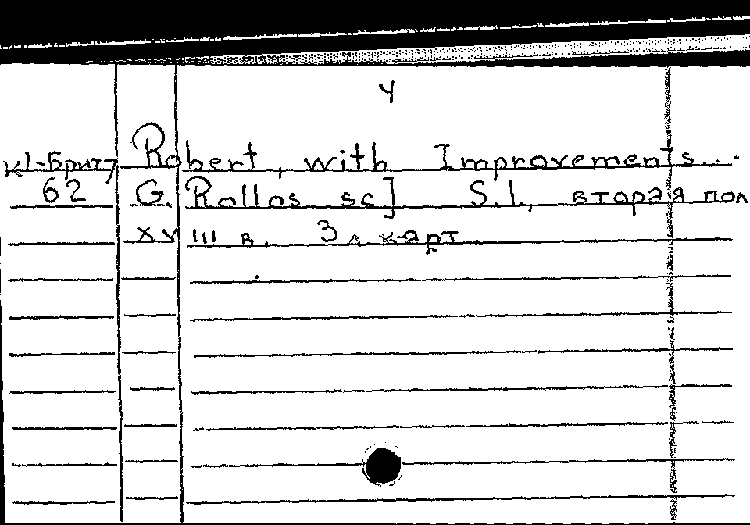 4
К1-Брит7 Robert, with Improvements...
62 G. Rollos sc] S.l., вторая пол
XVIII в. 3 л карт